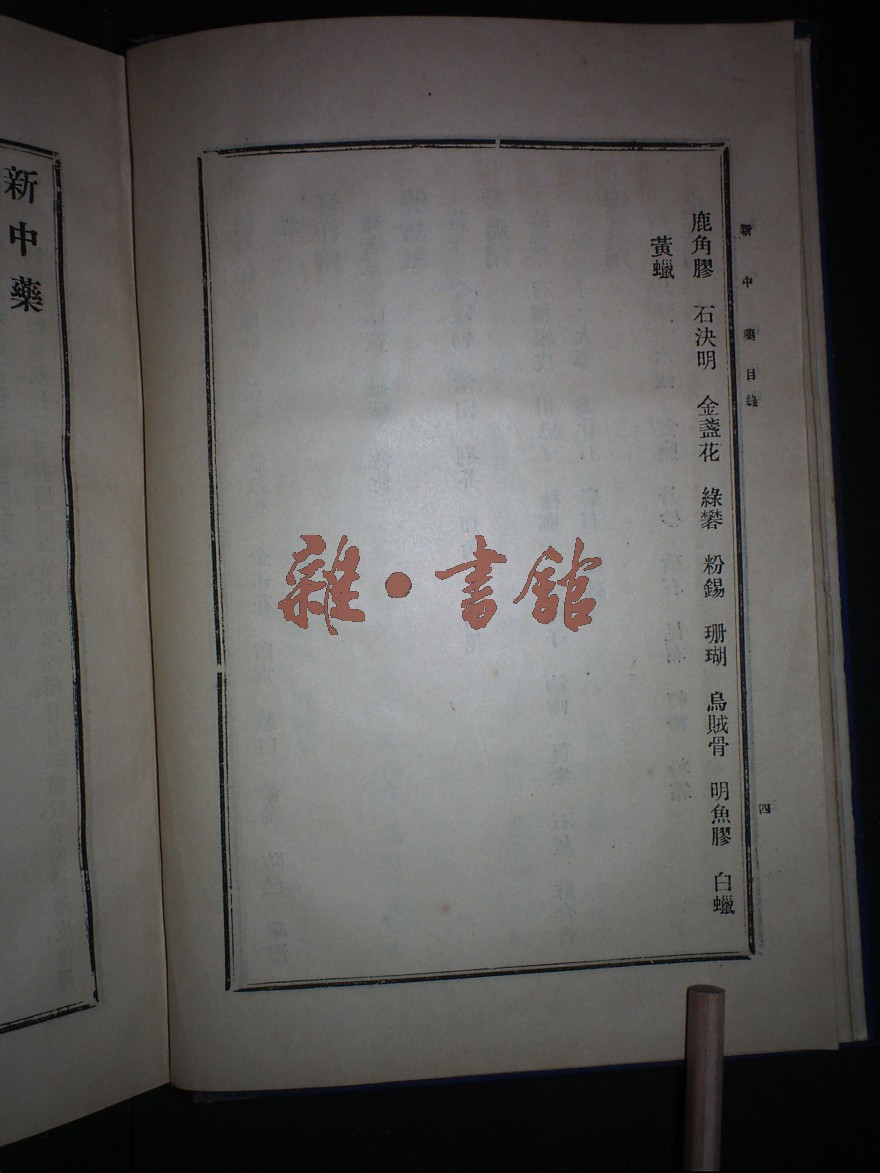 新中藥目錄
四
鹿角膠 石決明 金盞花 綠礬 粉錫 珊瑚 烏賊骨 明魚膠 白蠟
黃蠟
雜•書館
新中藥